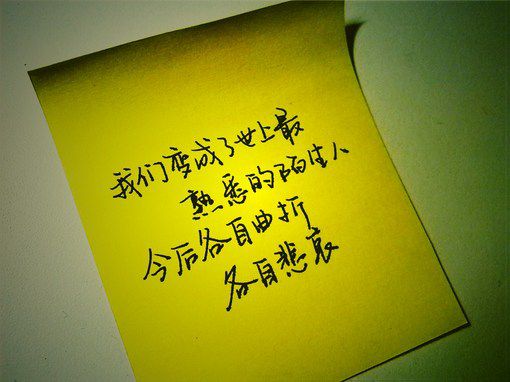 我们变成了世上最
熟悉的陌生人
今后各自曲折
各自悲哀